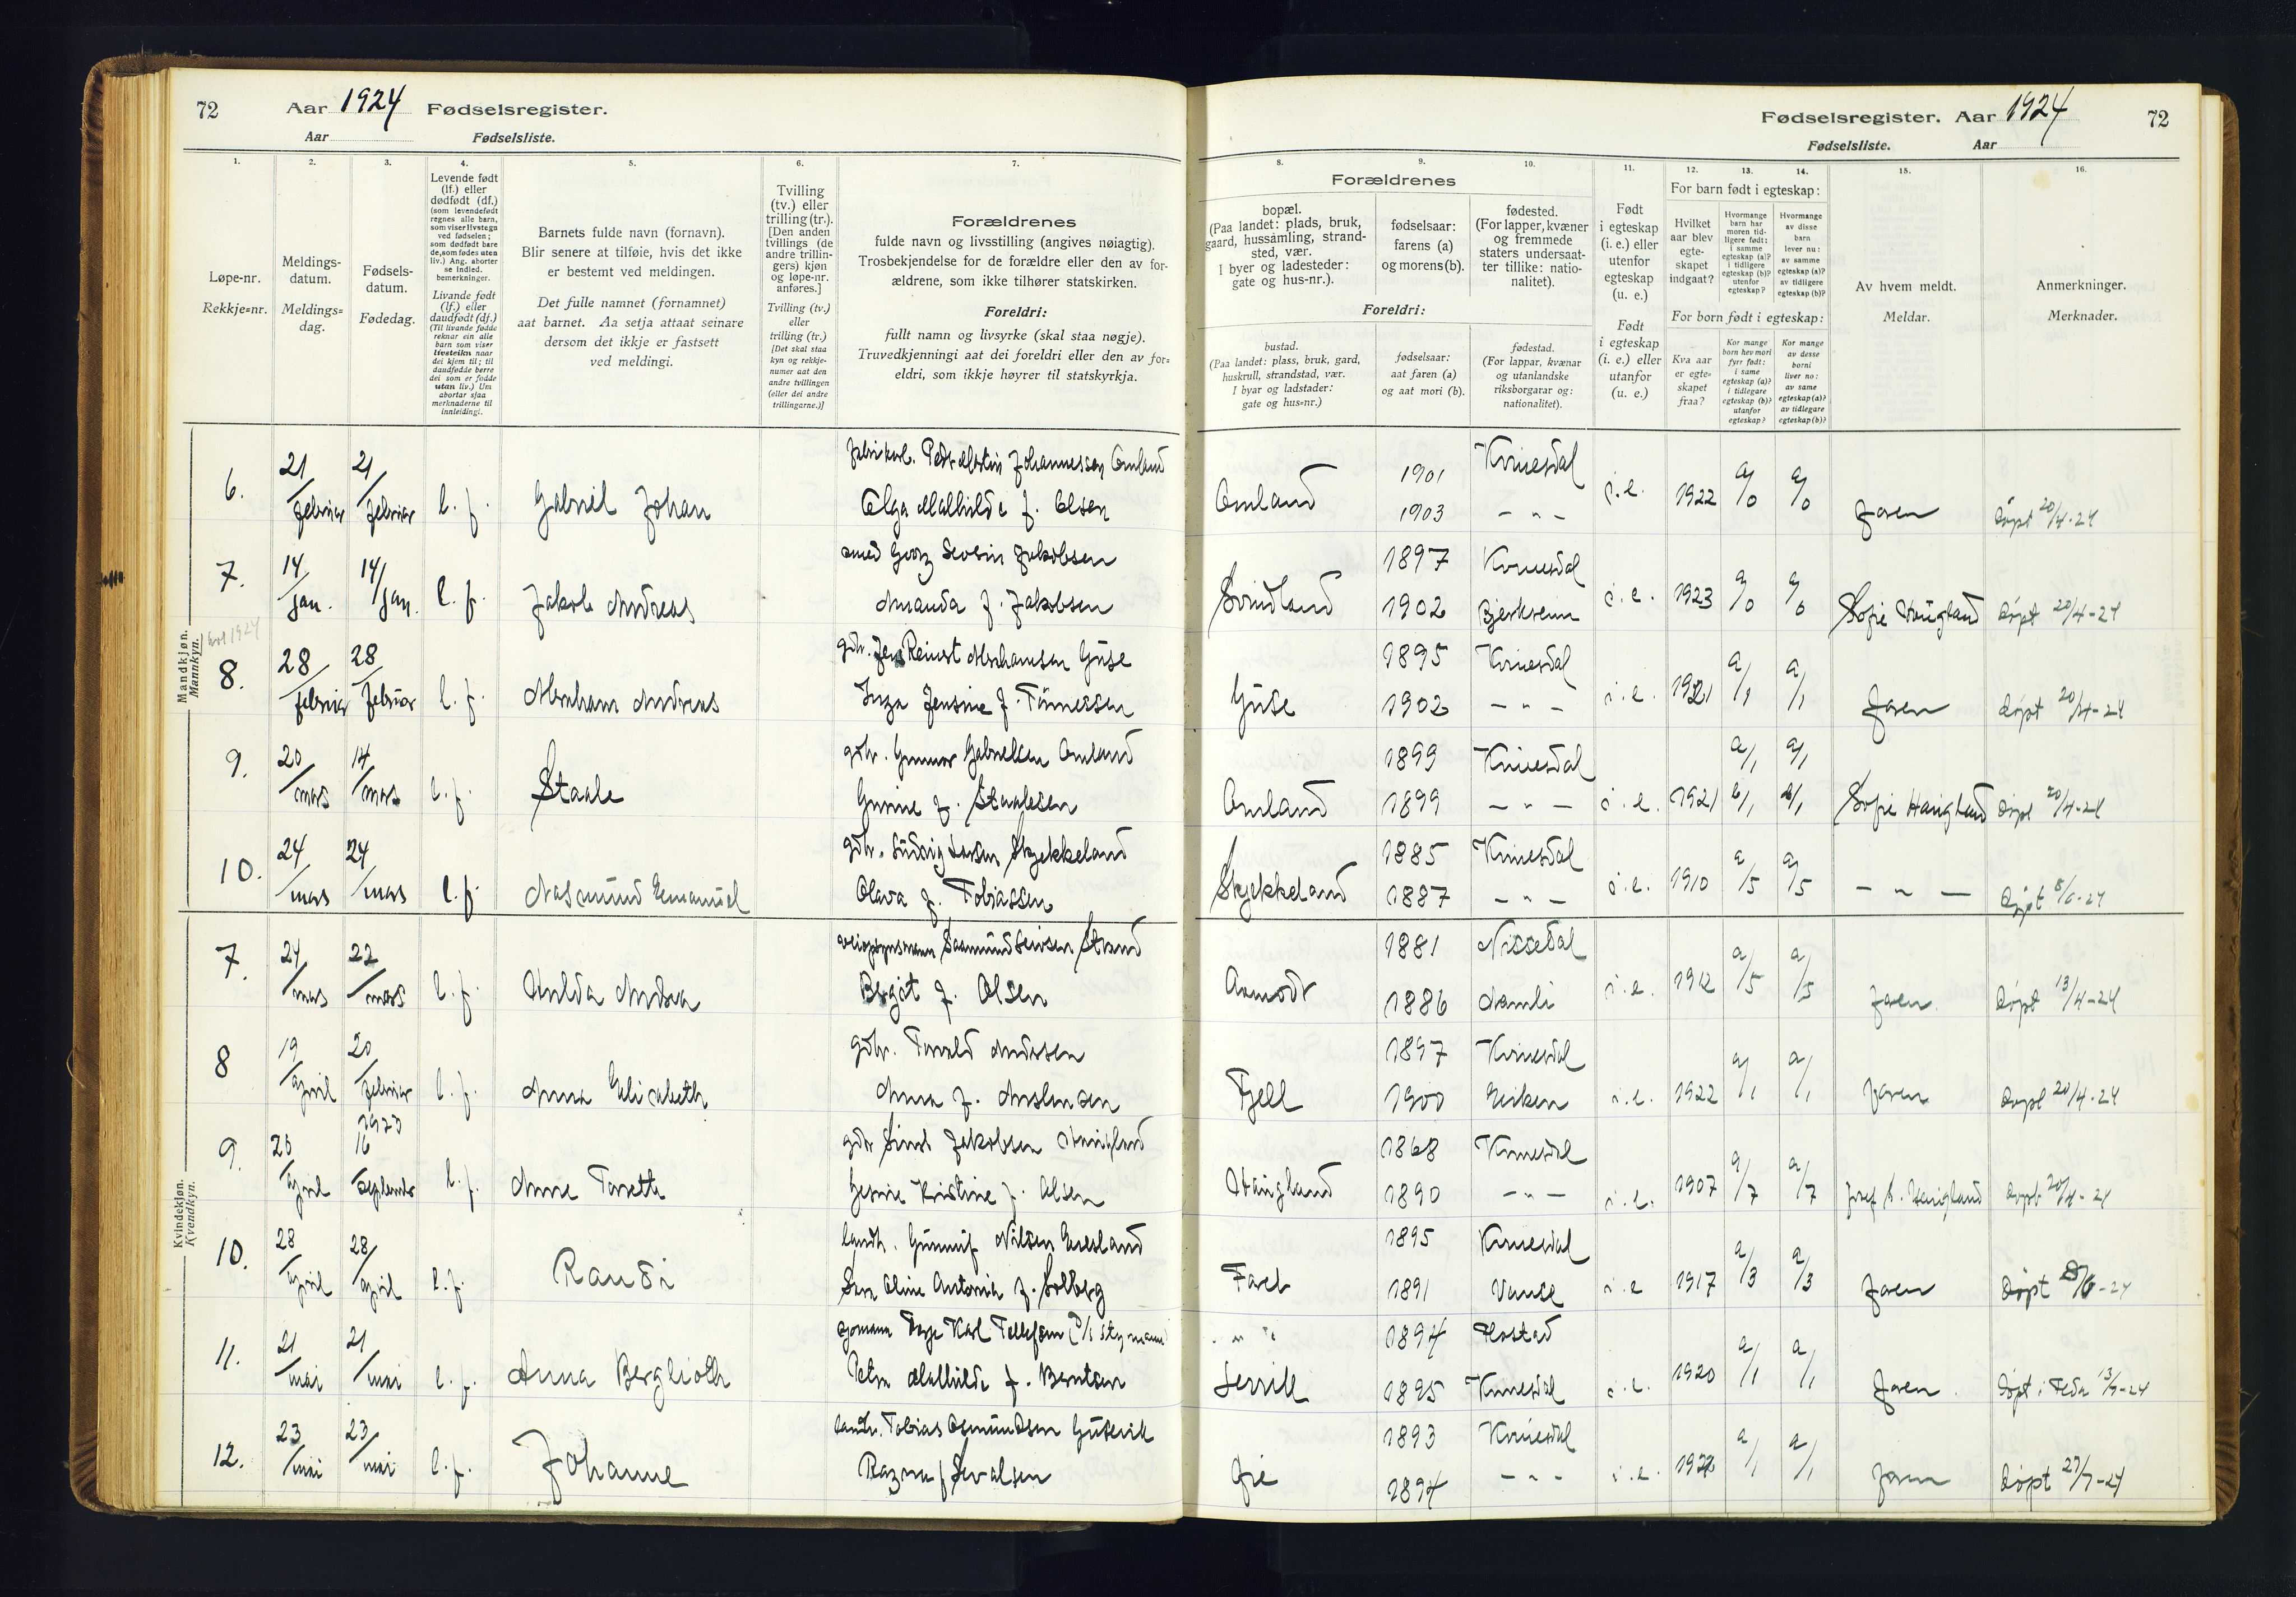 72 Aar 1924 Fødselsregister.
Aar Fødselsliste.
Fødselsregister. Aar 1924 72
Fødselsliste. Aar
1. 2. 3. 4. 5. 6. 7.
Løpe-nr.
Rekkje-nr.
Meldings-
datum.
Meldings-
dag.
Fødsels-
datum.
Fødedag.
Levende født
(lf.) eller
dødfødt (df.)
(som levendefødt
regnes alle barn,
som viser livstegn
ved fødselen;
som dødfødt bare
de, som fødes uten
liv.) Ang. aborter
se indled.
bemerkninger.
Livande født
(lf.) eller
daudfødt (df.)
(Til livande fødde
reknar ein alle
barn som viser
livsteikn naar
dei kjem til; til
daudfødde berre
dei som er fødde
utan liv.) Um
abortar sjaa
merknaderne til
innleidingi.
Barnets fulde navn (fornavn).
Blir senere at tilføie, hvis det ikke
er bestemt ved meldingen.
Det fulle namnet (fornamnet)
aat barnet. Aa setja attaat seinare
dersom det ikkje er fastsett
ved meldingi.
Tvilling
(tv.) eller
trilling (tr.).
[Den anden
tvillings (de
andre trillin-
gers) kjøn
og løpe-nr.
anføres.]
Tvilling (tv.)
eller
trilling (tr.)
[Det skal staa
kyn og rekkje-
numer aat den
andre tvillingen
(eller dei andre
trillingarne.)]
Forældrenes
fulde navn og livsstilling (angives nøiagtig).
Trosbekjendelse for de forældre eller den av for-
ældrene, som ikke tilhører statskirken.
Foreldri:
fullt namn og livsyrke (skal staa nøgje).
Truvedkjenningi aat dei foreldri eller den av for-
eldri, som ikkje høyrer til statskyrkja.
8. 9. 10. 11. 12. 13. 14. 15. 16.
Forældrenes
bopæl.
(Paa landet: plads, bruk,
gaard, hussamling, strand-
sted, vær.
I byer og ladesteder:
gate og hus-nr.).
fødselsaar:
farens (a)
og morens (b).
fødested.
(For lapper, kvæner
og fremmede
staters undersaat-
ter tillike: natio-
nalitet).
Foreldri:
bustad.
(Paa landet: plass, bruk, gard,
huskrull, strandstad, vær.
I byar og ladstader:
gate og hus-nr.)
fødselsaar:
aat faren (a)
og aat mori (b).
fødestad.
(For lappar, kvænar
og utanlandske
riksborgarar og:
nationalitet).
Født
i egteskap
(i. e.) eller
utenfor
egteskap
(u. e.)
Født
i egteskap
(i. e.) eller
utanfor
(u. e.)
For barn født i egteskap:
Hvilket
aar blev
egte-
skapet
indgaat?
Hvormange
barn har
moren tid-
ligere født:
i samme
egteskap (a)?
i tidligere
egteskap (b)?
utenfor
egteskap?
Hvormange
av disse
barn
lever nu:
av samme
egteskap (a)?
av tidligere
egteskap (b)?
For born født i egteskap:
Kva aar
er egte-
skapet
fraa?
Kor mange
born hev mori
fyrr født:
i same
egteskap (a)?
i tidlegare
egteskap (b)?
utanfor
egteskap?
Kor mange
av desse
borni
liver no:
av same
egteskap (a)?
av tidlegare
egteskap (b)?
Av hvem meldt.
Meldar.
Anmerkninger.
Merknader.
Mandkjøn.
Mannkyn.
6. 21/februar 21/februar l. f. Gabriel Johan
Johannessen Omland
Olga Mathilde f. Olsen
Omland 1901 Kvinesdal i. e. 1922 a/0 a/0 Faren Døpt 20/4-24
1903 - " -
7. 14/jan. 14/jan. l. f. Jakob Andreas
smed Georg Severin Jakobsen
Amanda f. Jakobsen
Svindland 1897 Kvinesdal i. e. 1923 a/0 a/0 Sofie Haugland Døpt 20/4-24
1902 Bjerkreim
8. 28/februar 28/februar l. f. Abraham Andreas
gdbr. Jens Reinert Abrahamsen Guse
Inga Jensine f. Tønnessen
Guse 1895 Kvinesdal i. e. 1921 a/1 a/1 Faren Døpt 20/4-24
1902 - " -
9. 20/mars 14/mars l. f. Staale
gdbr. Gunnar Gabrielsen Omland
Gurine f. Staalesen
Omland 1899 Kvinesdal i. e. 1921 a/1 a/1 Sofie Haugland Døpt 20/4-24
1899 - " - b/1 b/1
10. 24/mars 24/mars l. f. Rasmund Emanuel
gdbr. Ludvig Larsen Skjekkeland
Olava f. Tobiassen
Skjekkeland 1885 Kvinesdal i. e. 1910 a/5 a/5 - " - Døpt 8/6-24
1887 - " -
Kvindekjøn.
Kvendkyn.
7. 24/mars 22/mars l. f. Hulda Andrea
Strand
Bergit f. Olsen
Aamodt 1881 Nissedal i. e. 1912 a/5 a/5 Faren Døpt 13/4-24
1886 Aamli
8 19/april 20/februar l. f. Anna Elisabeth
gdbr. Torvald Andersen
Anna f. Anslensen
Fjell 1897 Kvinesdal i. e. 1922 a/1 a/1 Faren Døpt 20/4-24
1900 Eiken
9. 20/april 1923 16/september l. f. Anne Torette
gdbr Simon Jakobsen Haugland
Gesine Kristine f. Olsen
Haugland 1868 Kvinesdal i. e. 1907 a/7 a/7 Josef S. Haugland Døpt 20/4-24
1890 - " -
10. 28/april 28/april l. f. Randi
landh. Gunnuf Nilsen Egeland
Sara Oline Antonia f. Solberg
1895 Kvinesdal i. e 1917 a/3 a/3 Faren Døpt
1891 Vanse
11. 21/mai 21/mai l. f. Anna Berglioth
sjømann Terje Karl Tellefsen
Petra Mathilde f. Berntsen
1894 i. e. 1920 a/1 a/1 Faren. Døpt i Feda 13/7-24
1895 Kvinesdal
12. 23/mai 23/mai l. f. Johanne
landh. Tobias Osmundsen Gusevik
Ragna f Sevalsen
1893 Kvinesdal i. e. 1922 a/1 a/1 Faren Døpt 27/7-24
1894 - " -